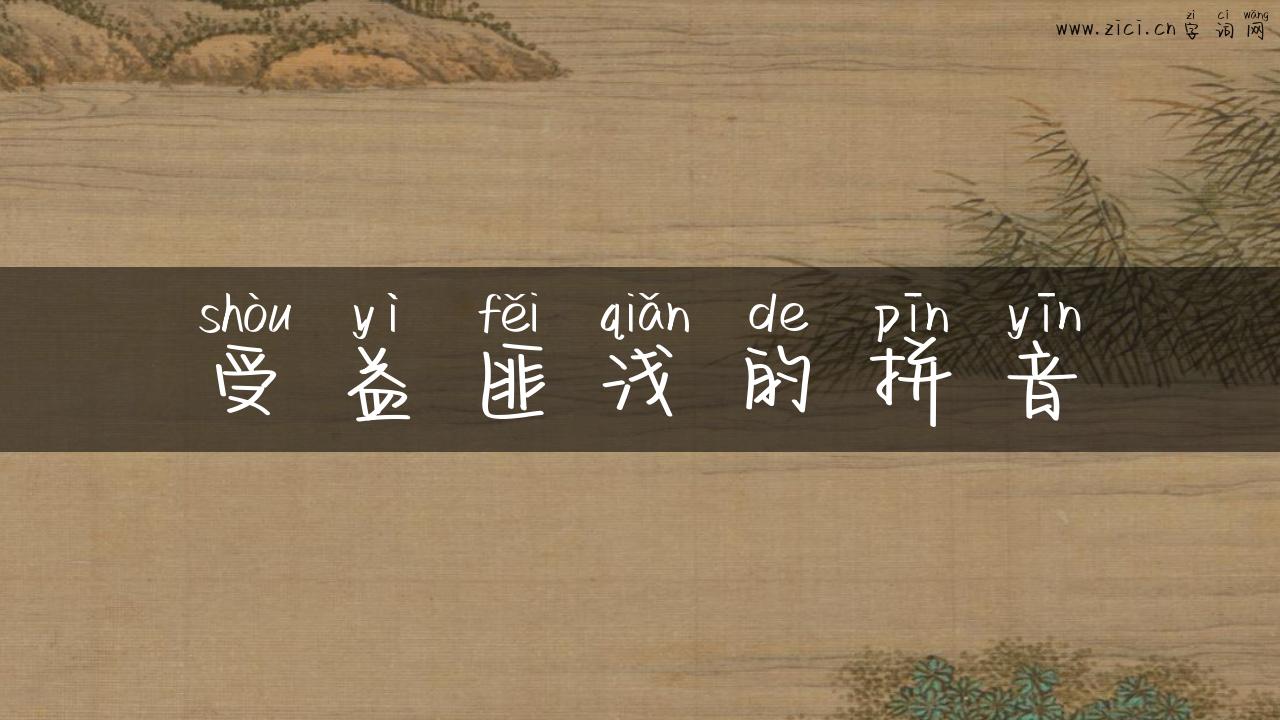 zì cí wǎng
www.zici.cn 字 词 网
shòu yì fěi qiǎn de pīn yīn
受 益 匪 浅 的 拼 音